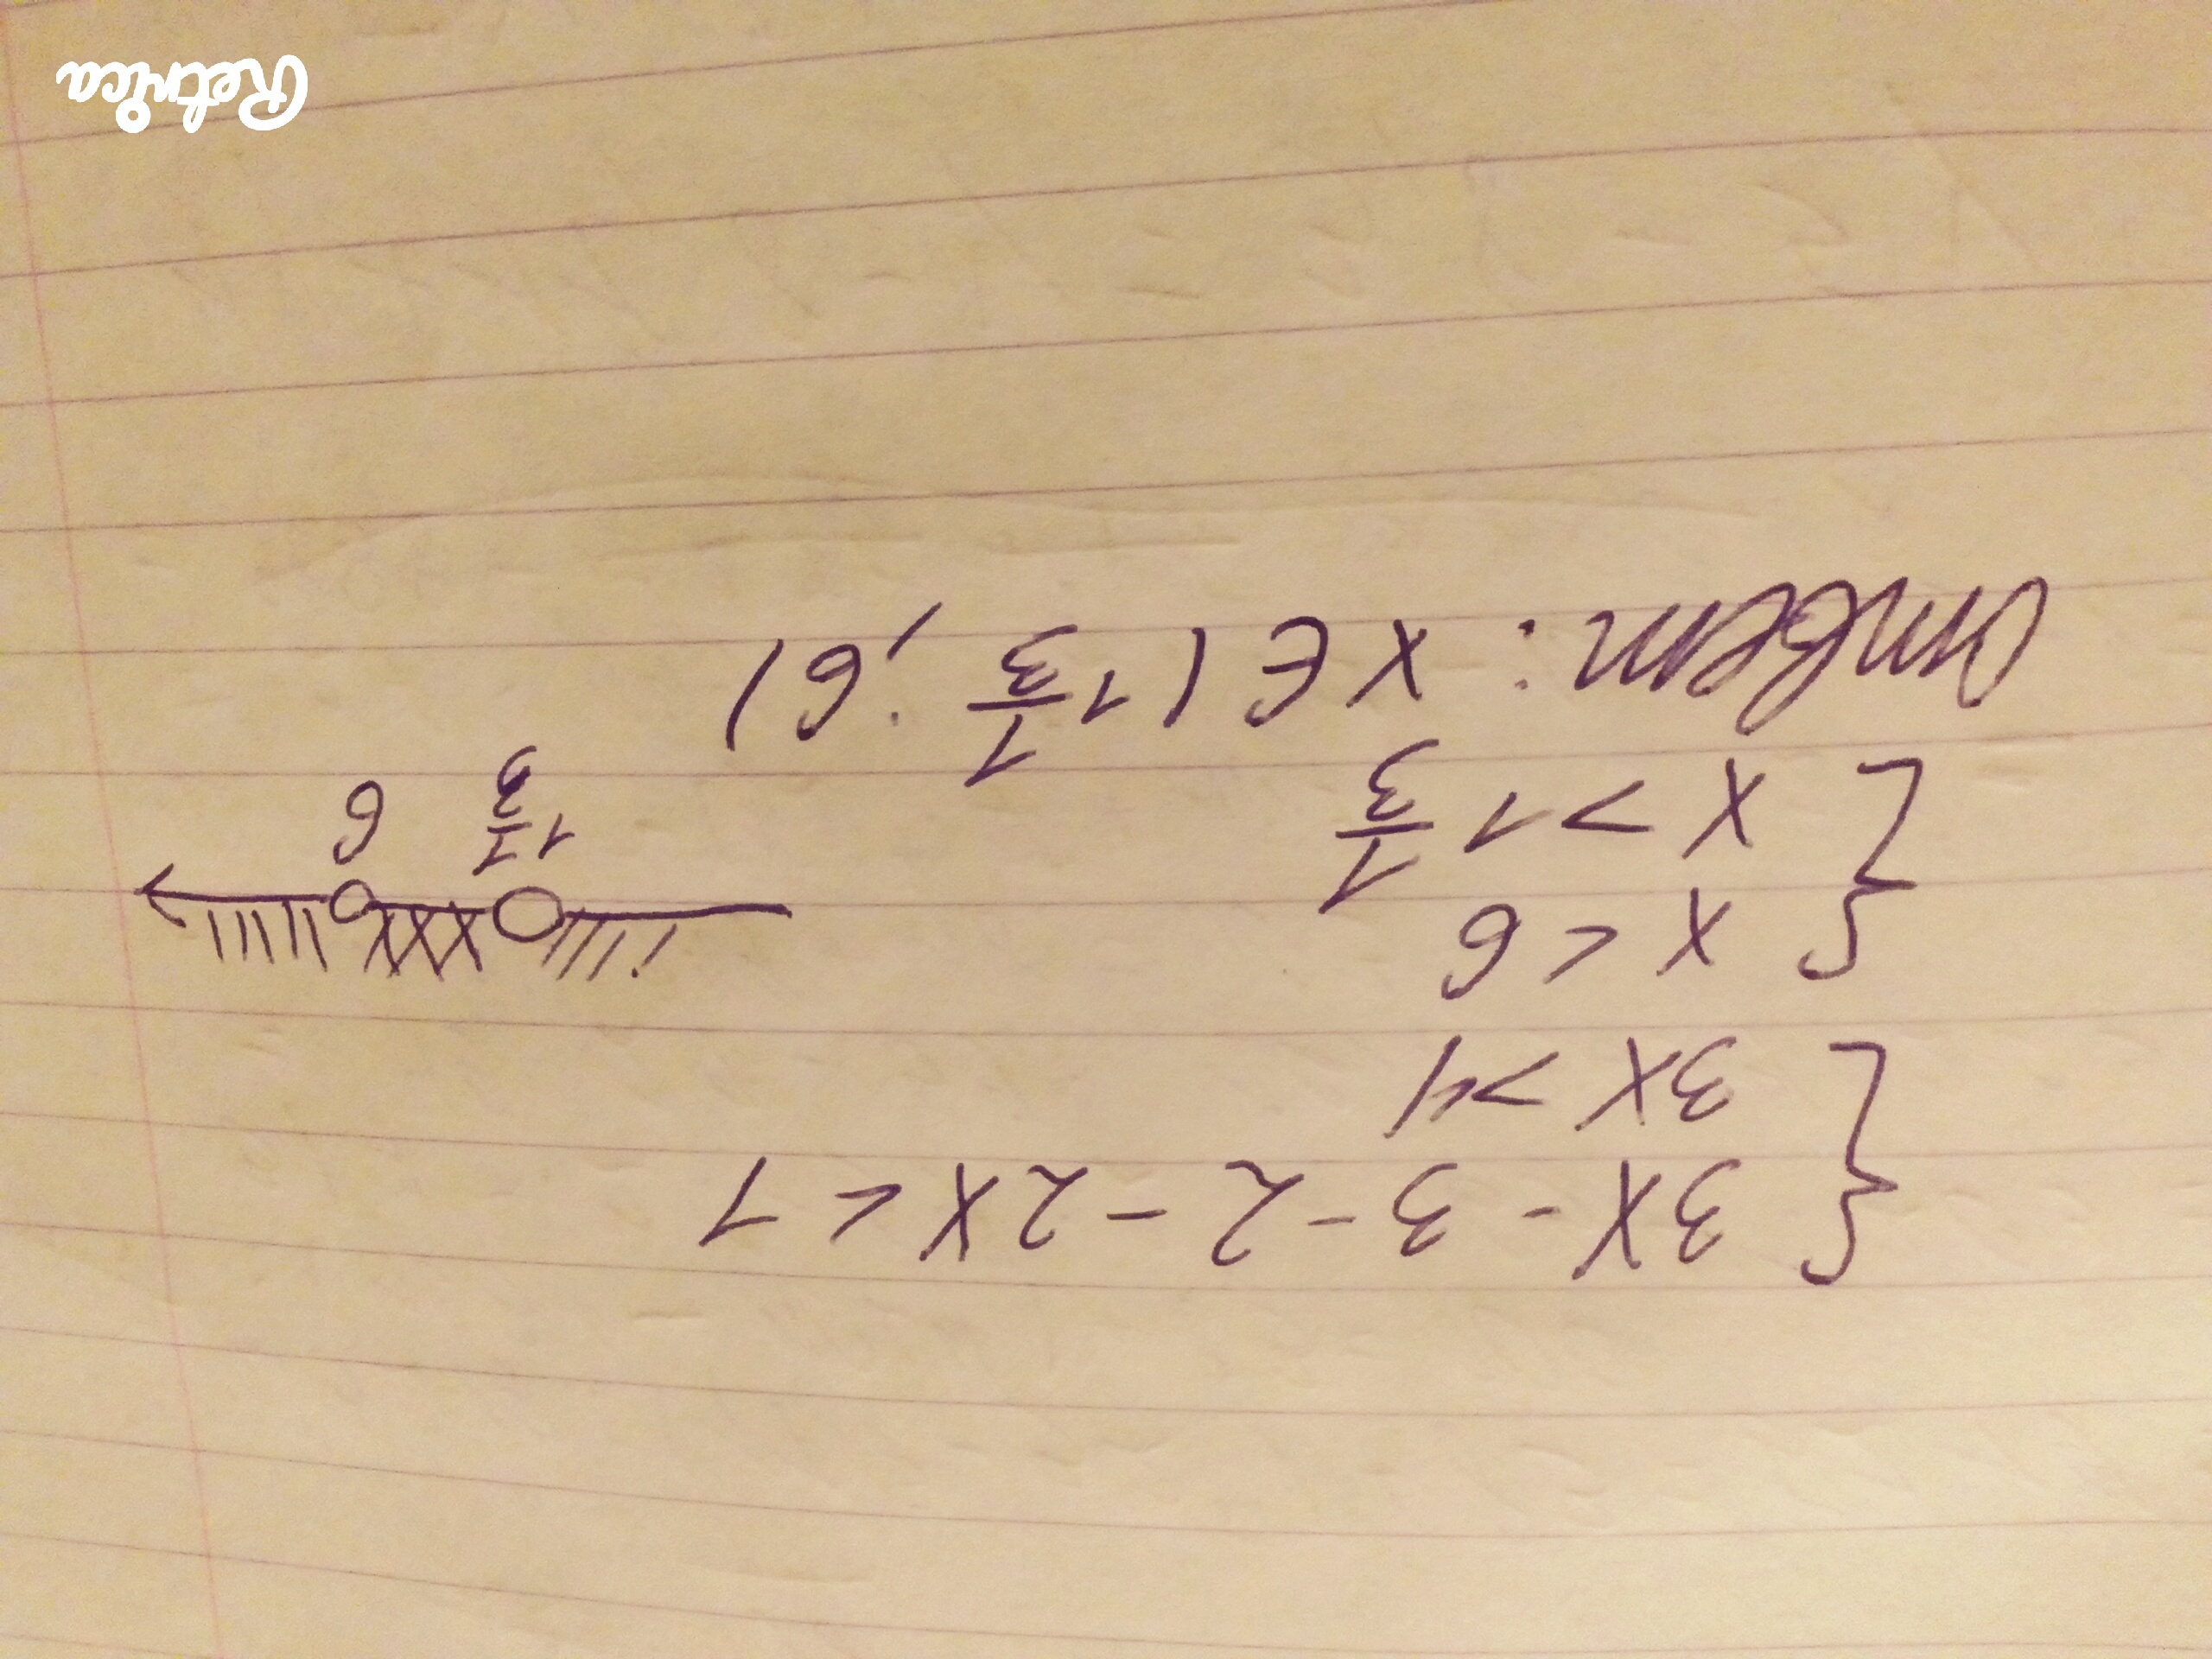 { 3x - 3 - 2 - 2x < 1
3x > 4
{ x < 6
x > 1 1/3
1 1/3 6
Ответ: x ∈ (1 1/3 ; 6)
Retrica